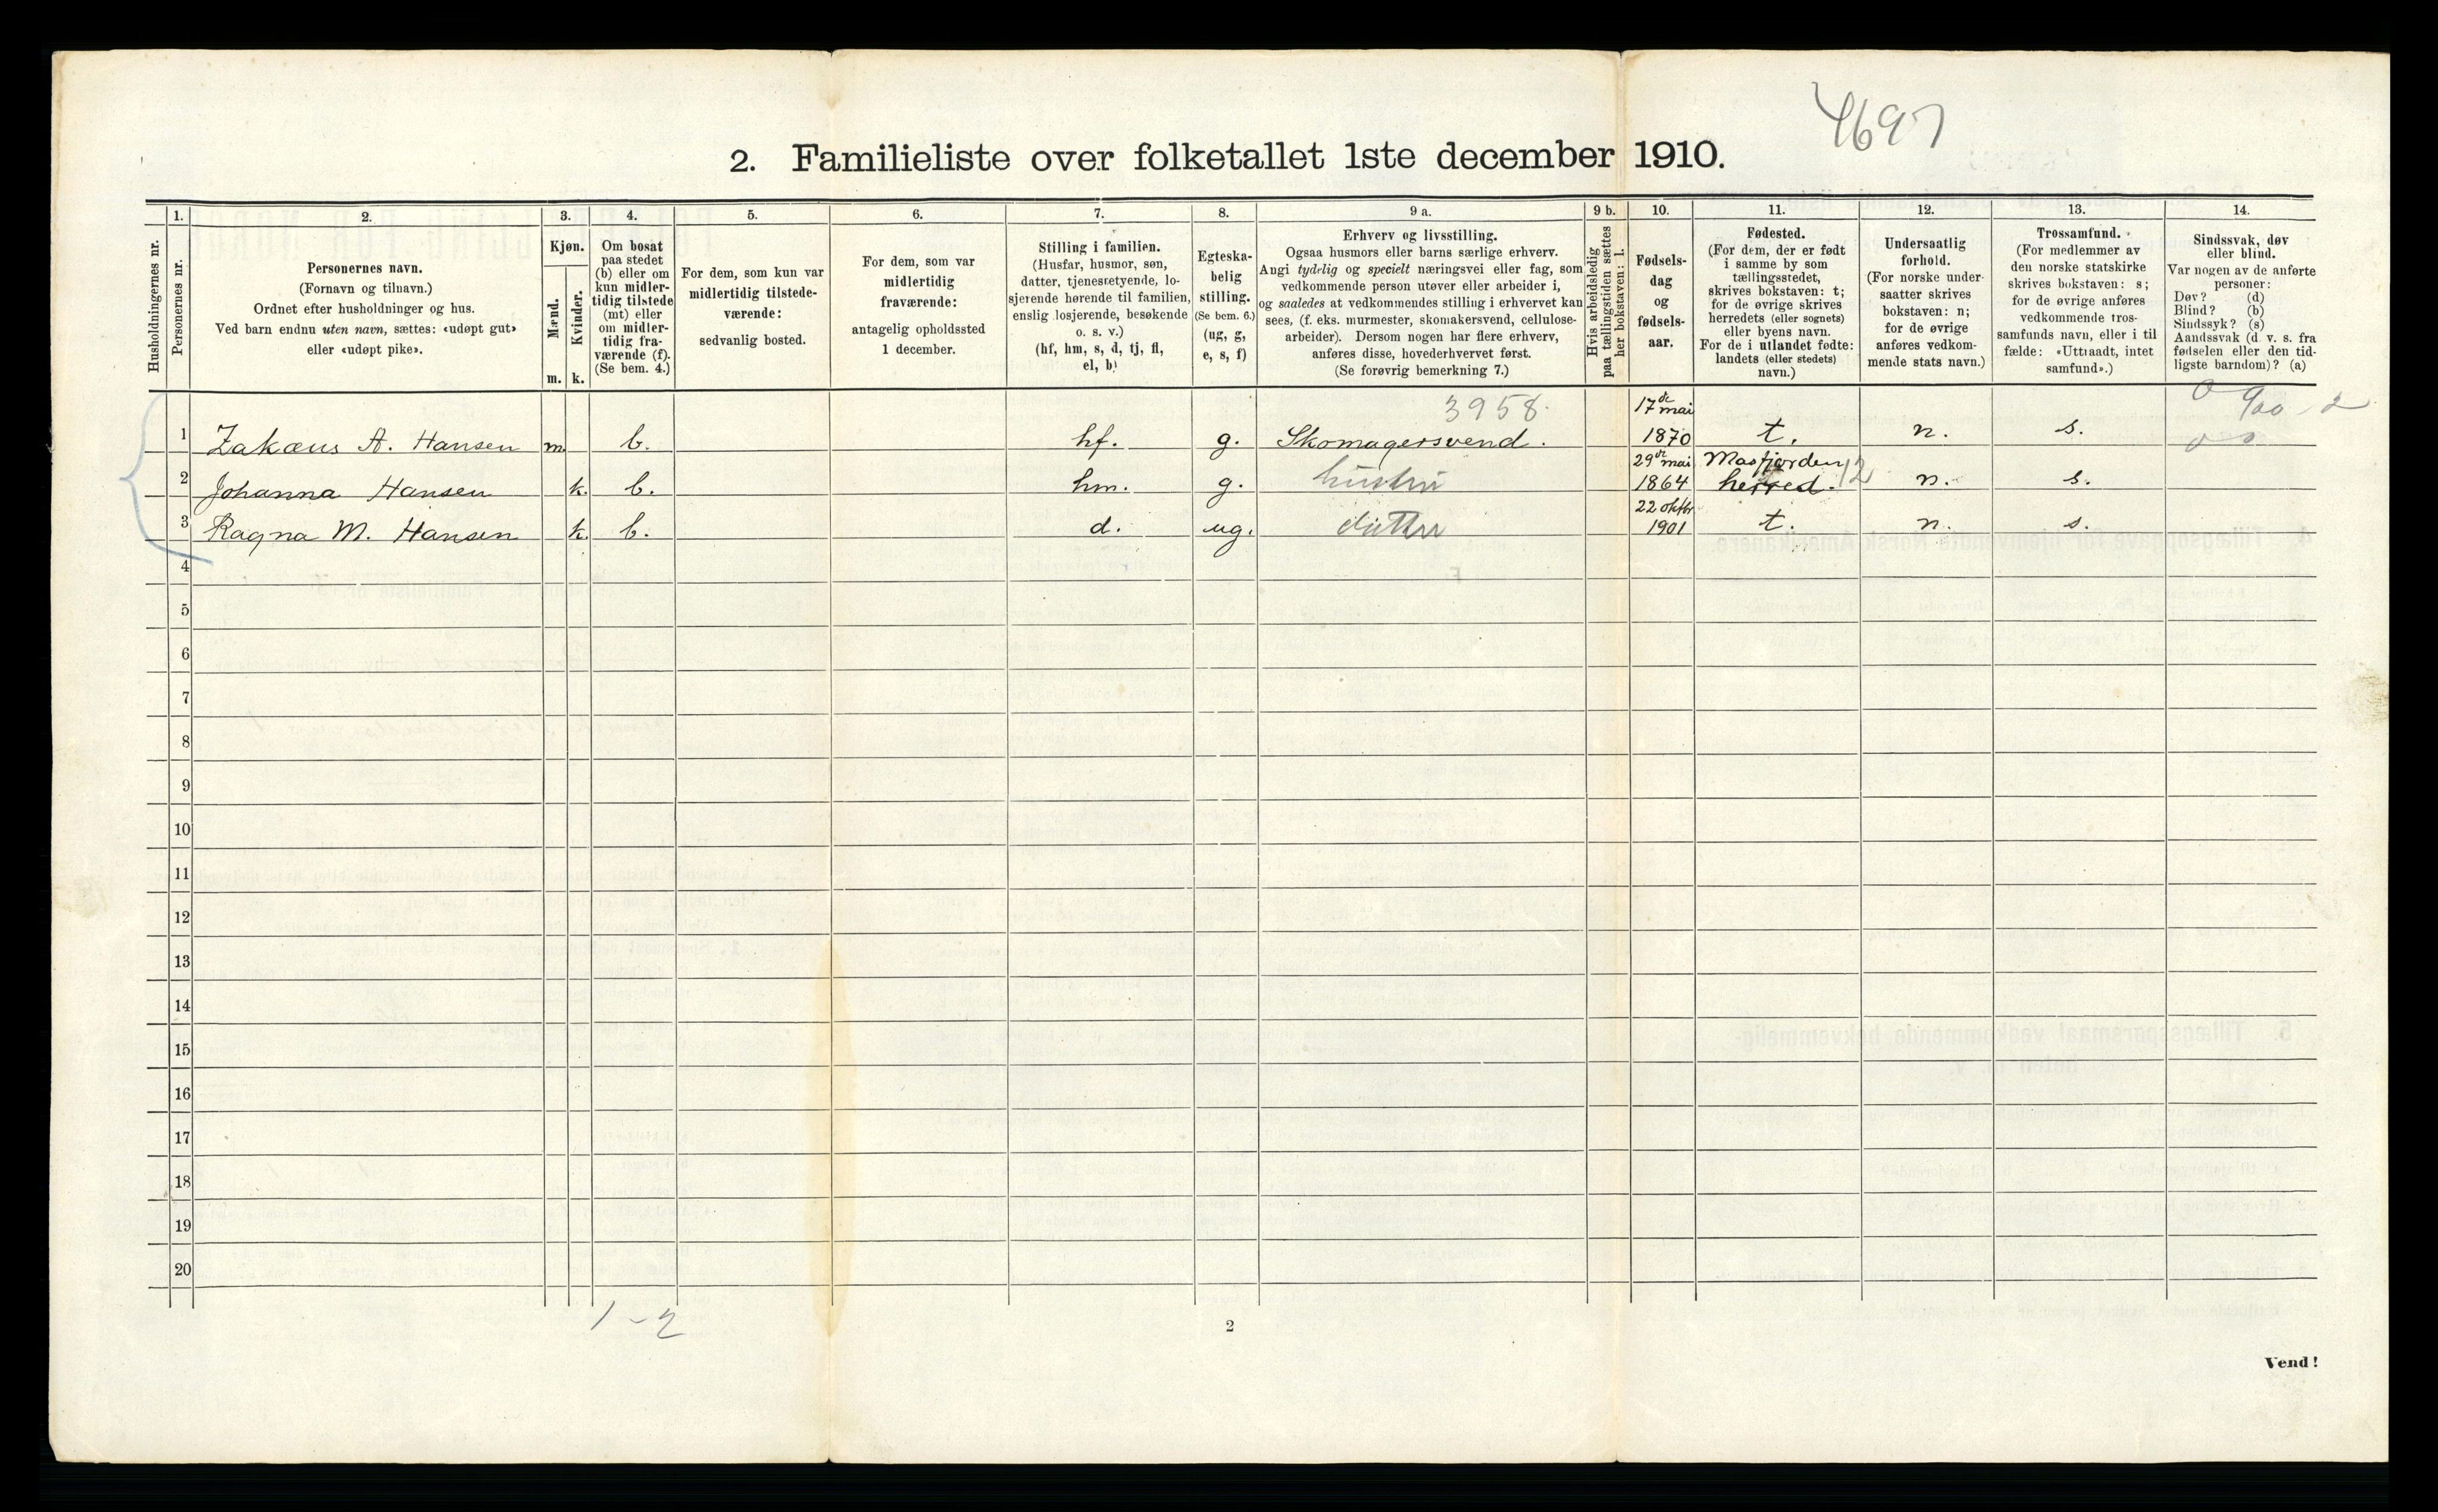 4697
2. Familieliste over folketallet 1ste december 1910.
1. 2. 3. 4. 5. 6. 7. 8. 9 a. 9 b. 10. 11. 12. 13. 14.
Husholdningernes nr.
Personernes nr.
Personernes navn.
(Fornavn og tilnavn.)
Ordnet efter husholdninger og hus.
Ved barn endnu uten navn, sættes: «udøpt gut»
eller «udøpt pike».
Kjøn.
Mænd.
Kvinder.
m. k.
Om bosat
paa stedet
(b) eller om
kun midler-
tidig tilstede
(mt) eller
om midler-
tidig fra-
værende (f).
(Se bem. 4.)
For dem, som kun var
midlertidig tilstede-
værende:
sedvanlig bosted.
For dem, som var
midlertidig
fraværende:
antagelig opholdssted
1 december.
Stilling i familien.
(Husfar, husmor, søn,
datter, tjenestetyende, lo-
sjerende hørende til familien,
enslig losjerende, besøkende
o. s. v.)
(hf, hm, s, d, tj, fl,
el, b)
Egteska-
belig
stilling.
(Se bem. 6.)
(ug, g,
e, s, f)
Erhverv og livsstilling.
Ogsaa husmors eller barns særlige erhverv.
Angi tydelig og specielt næringsvei eller fag, som
vedkommende person utøver eller arbeider i,
og saaledes at vedkommendes stilling i erhvervet kan
sees, (f. eks. murmester, skomakersvend, cellulose-
arbeider). Dersom nogen har flere erhverv,
anføres disse, hovederhvervet først.
(Se forøvrig bemerkning 7.)
Hvis arbeidsledig
paa tællingstiden sættes
her bokstaven: l.
Fødsels-
dag
og
fødsels-
aar.
Fødested.
(For dem, der er født
i samme by som
tællingsstedet,
skrives bokstaven: t;
for de øvrige skrives
herredets (eller sognets)
eller byens navn.
For de i utlandet fødte:
landets (eller stedets)
navn.)
Undersaatlig
forhold.
(For norske under-
saatter skrives
bokstaven: n;
for de øvrige
anføres vedkom-
mende stats navn.)
Trossamfund.
(For medlemmer av
den norske statskirke
skrives bokstaven: s;
for de øvrige anføres
vedkommende tros-
samfunds navn, eller i til
fælde: «Uttraadt, intet
samfund».)
Sindssvak, døv
eller blind.
Var nogen av de anførte
personer:
Døv? (d)
Blind? (b)
Sindssyk? (s)
Aandssvak (d. v. s. fra
fødselen eller den tid-
ligste barndom)? (a)
3958. 17de mai
1 Zakæus A. Hansen m. b. hf. g. Skomagersvend. 1870 t. n. s.
29de mai Masfjorden
2 Johanna Hansen k. b. hm. g. hustru 1864 herred. 12 n. s.
22 oktbr
3 Ragna M. Hansen k. b. d. ug. datter 1901 t. n. s.
4
5
6
7
8
9
10
11
12
13
14
15
16
17
18
19
20
1 - 2
2
Vend!